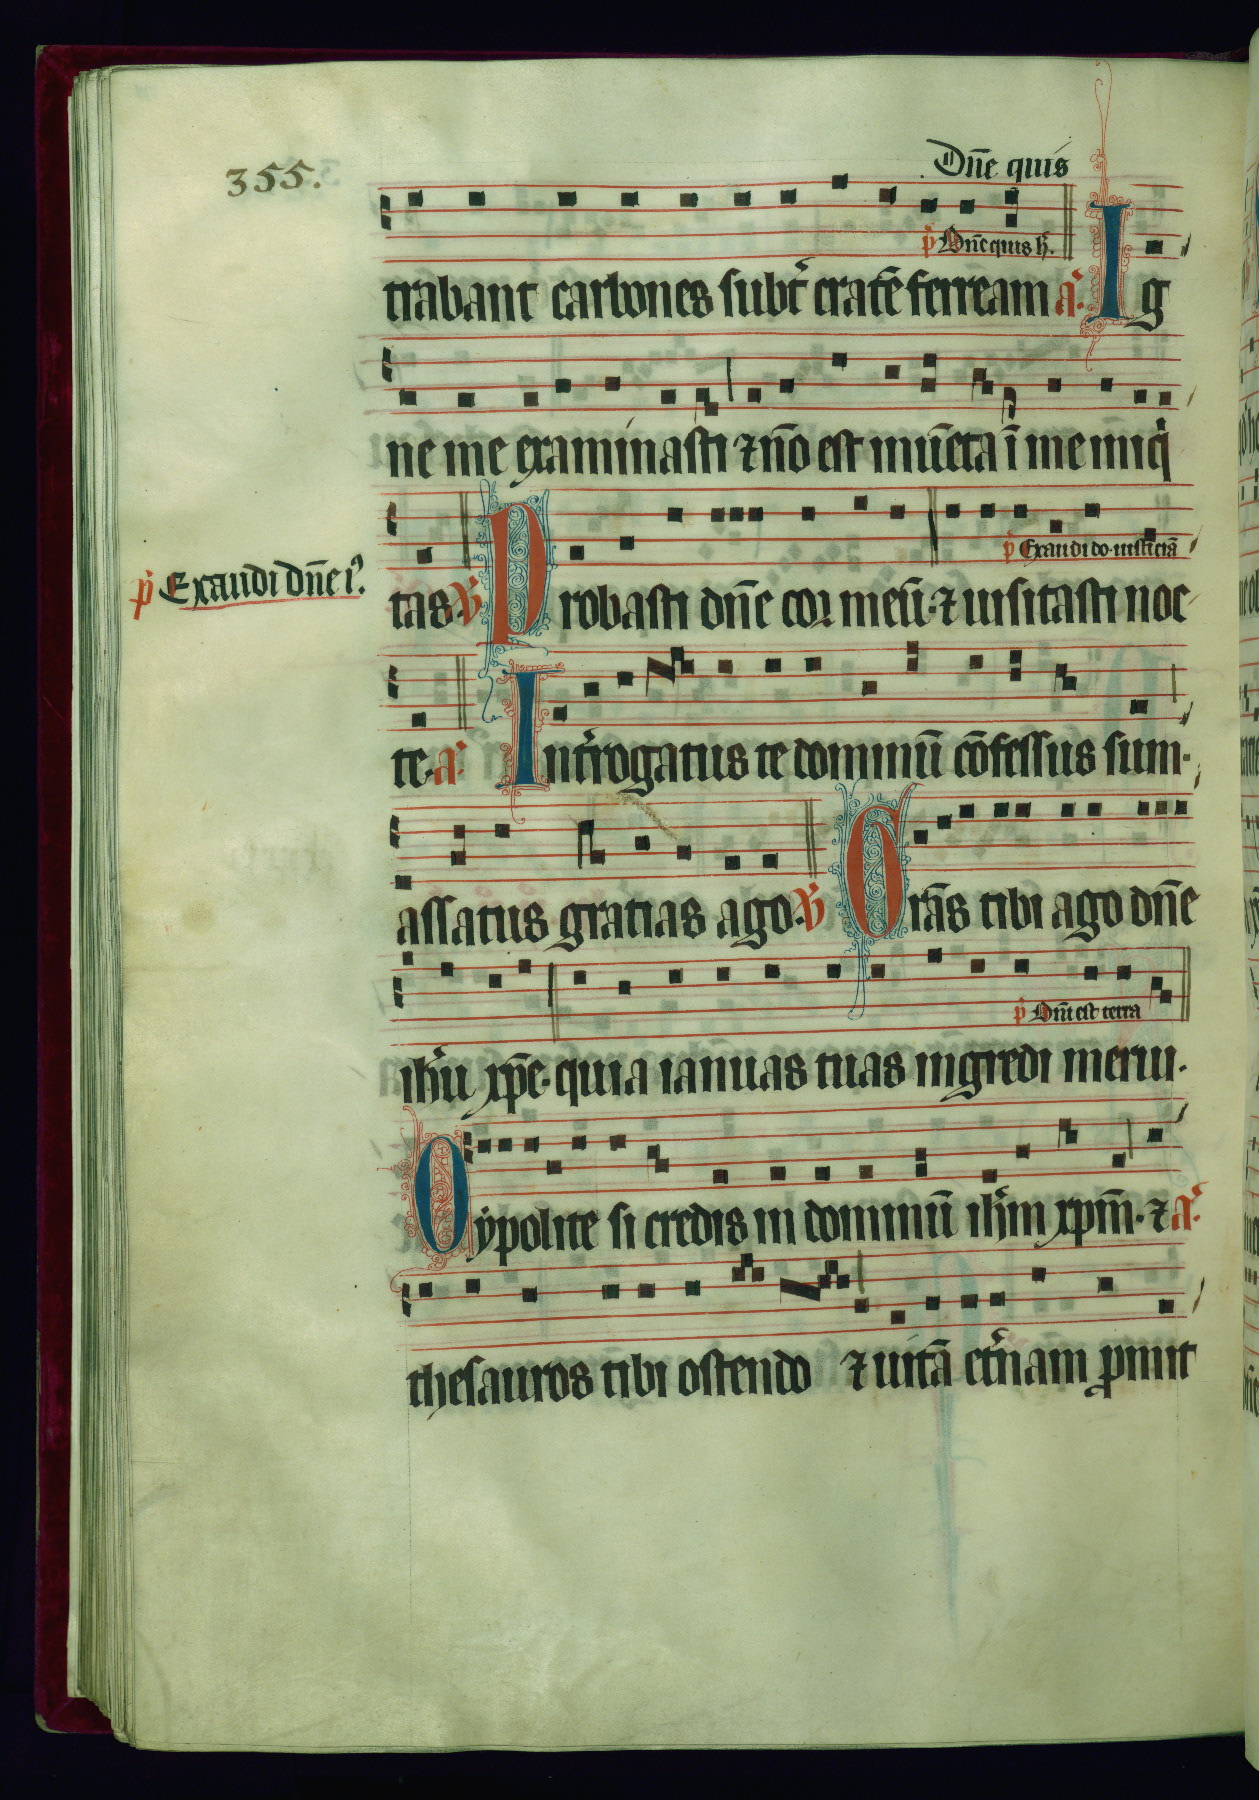 355.
Dn̄e quis
p̄ Dn̄e quis h̄.
trabant carbones subt᷑ cratē ferream a᷑. Ig
ne me examinasti ⁊ nō est inūeta ī me iniqͥ
p᷑ Exaudi dn̄e i᷑.
p̄ Exaudi do. iusticiā
tas. ꝟ Probasti dn̄e cor meū. ⁊ uisitasti noc
te. a᷑. Int᷑rogatus te dominū cōfessus sum.
assatus gratias ago. ꝟ Grās tibi ago dn̄e
p̄ Dn̄i est terra
ih̄u xp̄e. quia ianuas tuas ingredi merui.
Oẏpolite si credis in dominū ih̄m xp̄m. ⁊ a᷑.
thesauros tibi ostendo ⁊ uitā et᷑nam ꝓmit